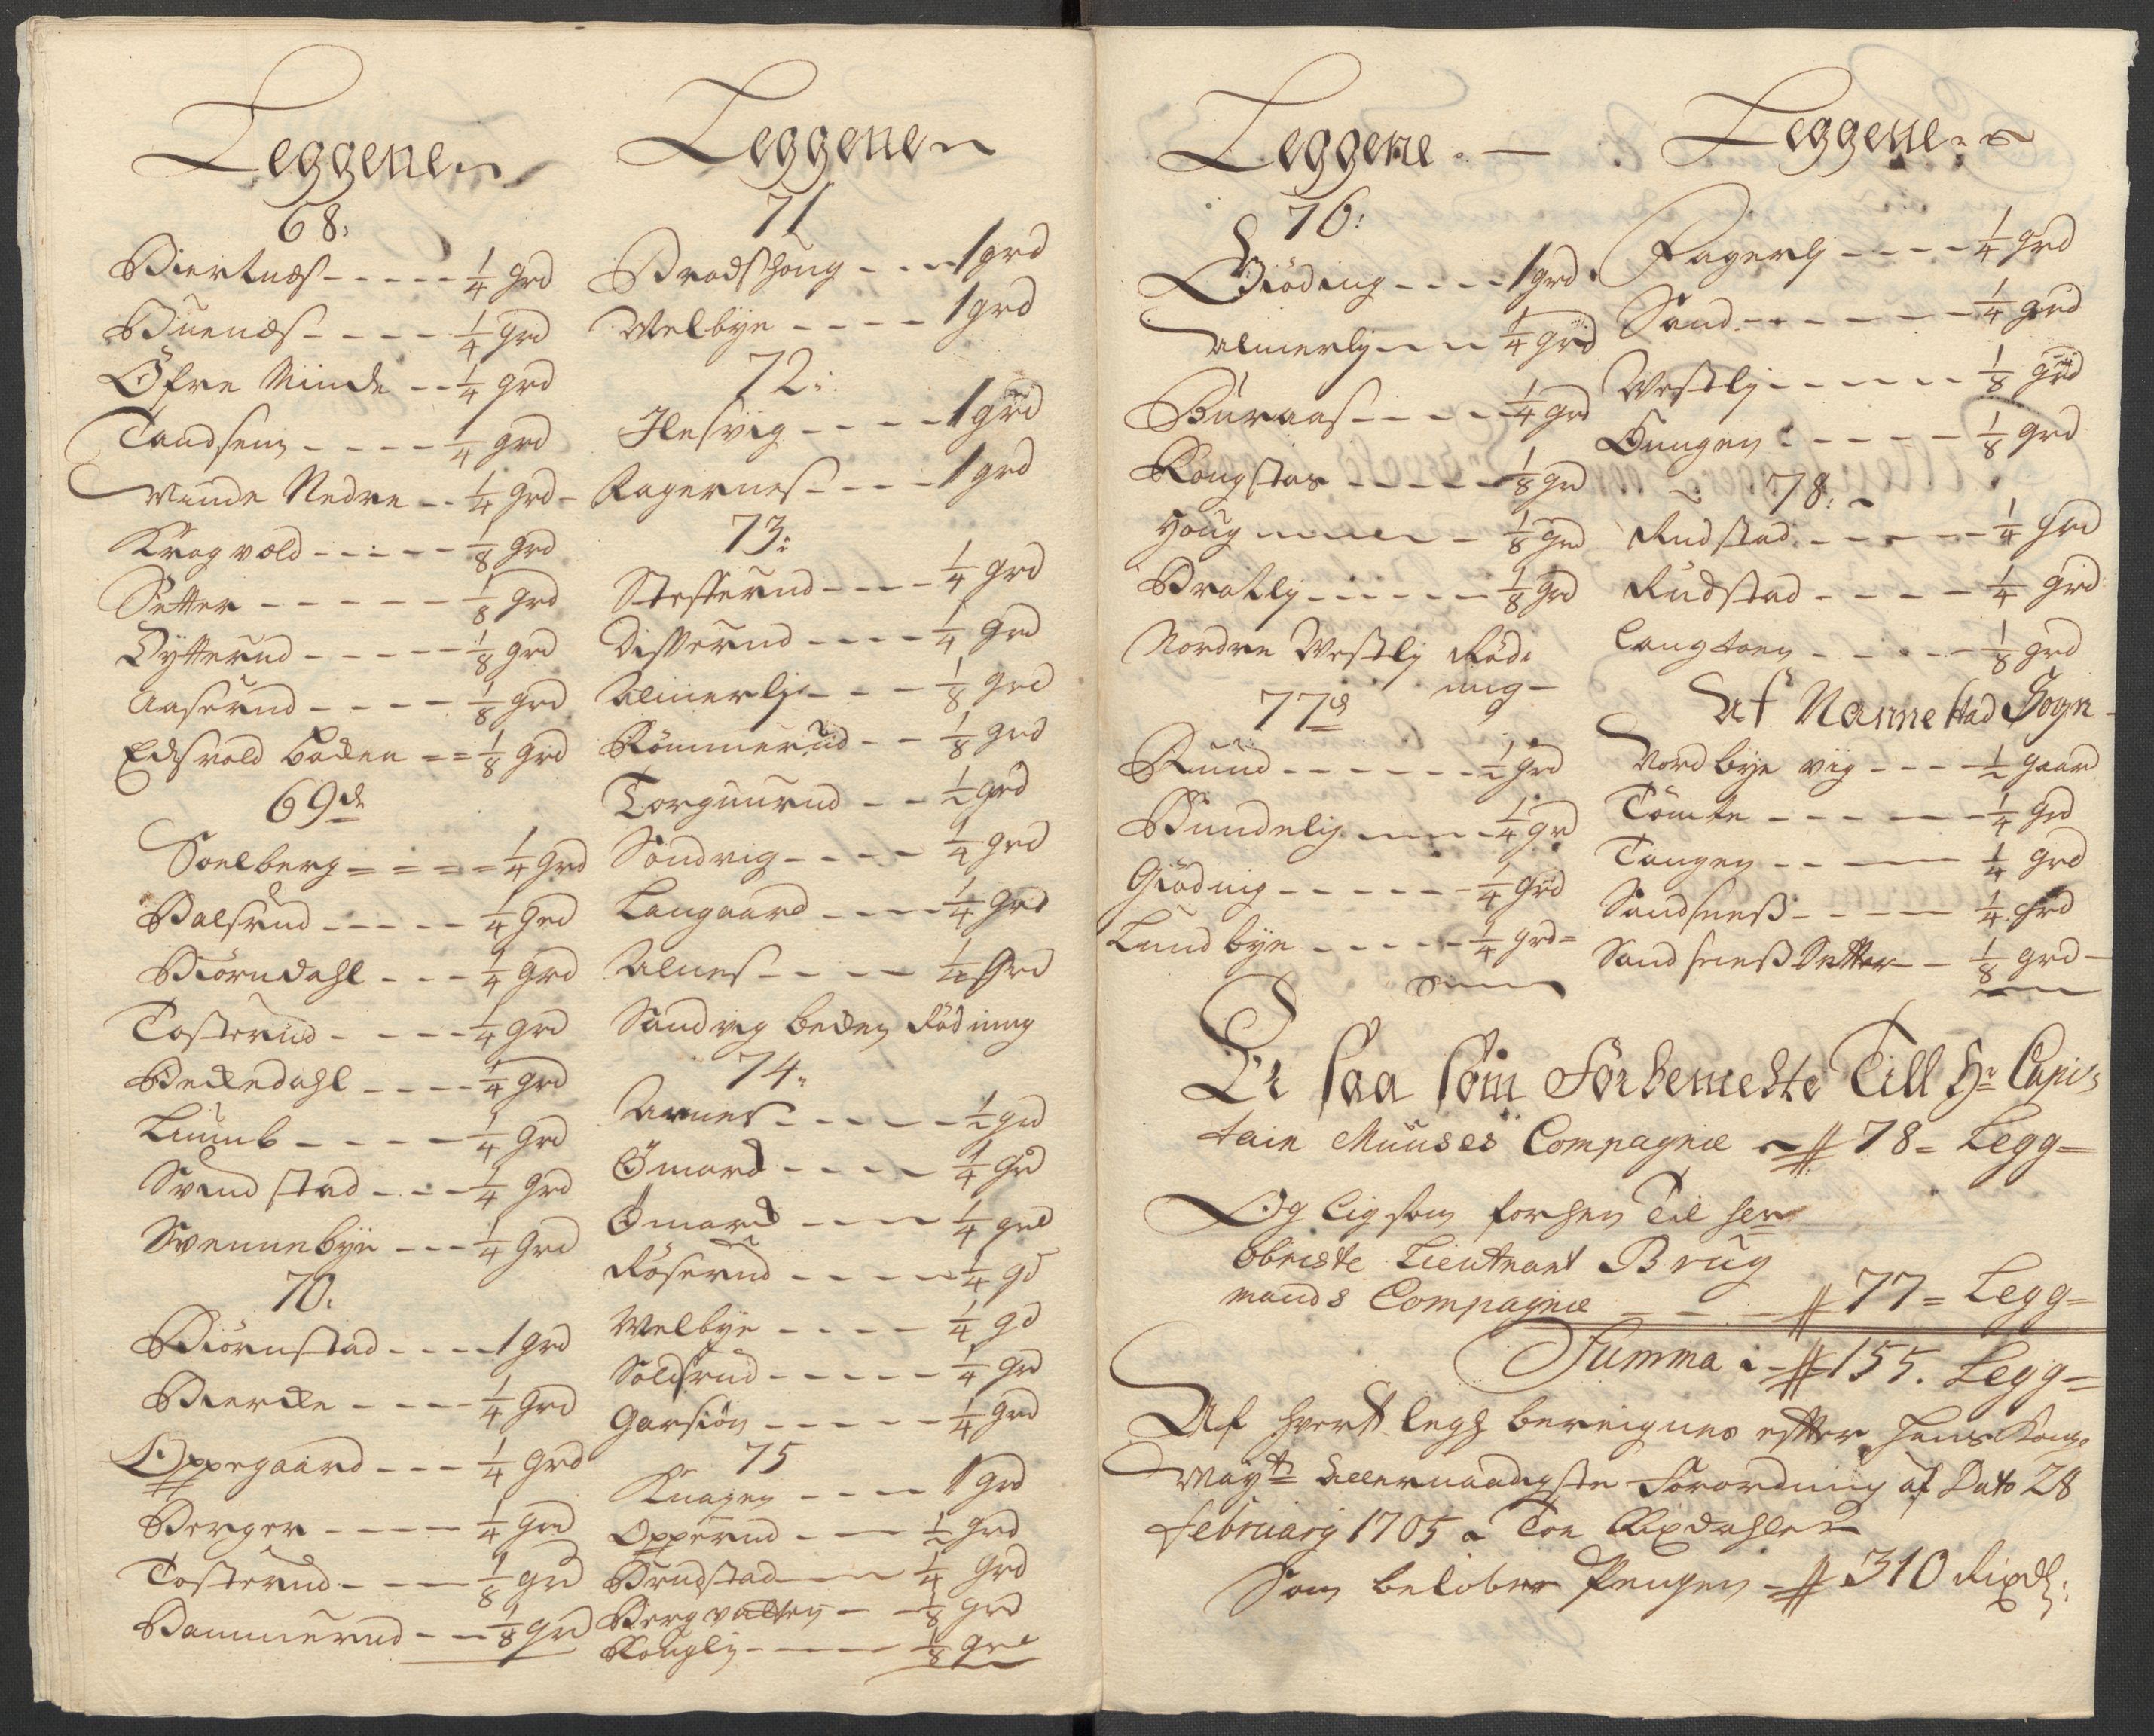 Leggene
68:
Biertnæs - - - - - 1/4 grd
Buenæs - - - - 1/4 grd
Öfre Minde - - 1/4 grd
Tandsem - - - - 1/4 grd
Minde Nedre - - 1/4 grd -
Krogvold - - - - - 1/8 grd
Sætter - - - - - 1/8 grd
Dytterud - - - - - 1/8 grd
Aaserud - - - - 1/8 grd
Edsvold backen - - 1/8 grd
69de
Soelberg - - - - 1/4 grd
Balsrud - - - - - 1/4 grd
Biörndahl - - - 1/4 grd
Tosterud - - - - 1/4 grd
Beckedahl - - - - 1/4 grd
Luumb - - - - - 1/4 grd
Svindstad - - - 1/4 grd
Svennebye - - - 1/4 grd
70.
Biörnstad - - - - 1 grd
Biercke - - - - 1/4 grd
Oppegaard - - - 1/4 grd
Berger - - - - 1/4 grd
Tosterud - - - - 1/8 grd
Dammerud - - - 1/8 grd
Leggene
71
Bradshoug - - - 1 grd
Welbye - - - - 1 grd
72:
Ilesvig - - - - 1 grd
Fagernes - - - - 1 grd
73:
Stefferud - - - - 1/4 grd
Disserud - - - - 1/4 grd
Almerlj - - - 1/8 grd
Römmerud - - 1/8 grd
Torgunrud - - 1/2 grd
Sandvig - - - - 1/4 grd
Langaard - - - - 1/4 grd
Alnes - - - - 1/4 grd
Sandvig becken Rödning
74.
Arnes - - - - - 1/2 grd
Ömord - - - - 1/4 grd
Ömord - - - 1/4 grd
Röserud - - - - - 1/4 gd
Welbye - - - - 1/4 gd
Soldsrud - - - - - 1/4 grd
Garsiön - - - - - 1/4 grd
75
Knagen - - - - 1 grd
Opperud - - - 1/2 grd
Brudstad - - - 1/4 grd
Bergvalten - - 1/8 grd
Rouglj - - - - 1/8 grd
Leggene
76:
Giöding - - - - 1 grd
Almerlj - - - 1/4 grd
Buraas - - - - 1/4 grd
Rougstad - - - - - 1/8 grd
Houg - - - - 1/8 grd
Bratlj - - - - - - 1/8 grd
Nordre Westlj Rödi
ning -
77de
Ruud - - - - - - - 1/2 grd
Bundelj - - - - 1/4 grd
Giödnig - - - - - - 1/4 grd
Lundbye - - - - - 1/4 grd =
Leggene
Fagerlj - - - - 1/4 grd
Sand - - - - - - 1/4 grd
Westlj - - - - - - 1/8 grd
Eungen - - - - - 1/8 grd
78:
Rudstad - - - - - - 1/4 grd
Rudstad - - - - - 1/4 grd
Langtoen - - - - - 1/8 grd
Af Nannestad Sogn -
Nordbye vig - - - - 1/2 gaard
Tömte - - - - - - 1/4 grd
Tangen - - - - 1/4 grd
Sandsness - - - - 1/4 grd
Sandsness Sætter - - 1/8 grd -
Er saa som Forbemelte Till Hr Capi-
tain Muuses Compagnie - # 78 = Legg =
Og ligsom forhen Til her
obriste Lieutnant Brüg
mands Compagnie - - - # 77 = Legg =
Summa - # 155. Legg =
Af hvert legg bereignes effter Hans Kong:
Mayts Allernaadigste Forordning af Dato 28
februarij 1705 a Toe Rixdahler
Som belöber Pengen - # 310 Rixdl: